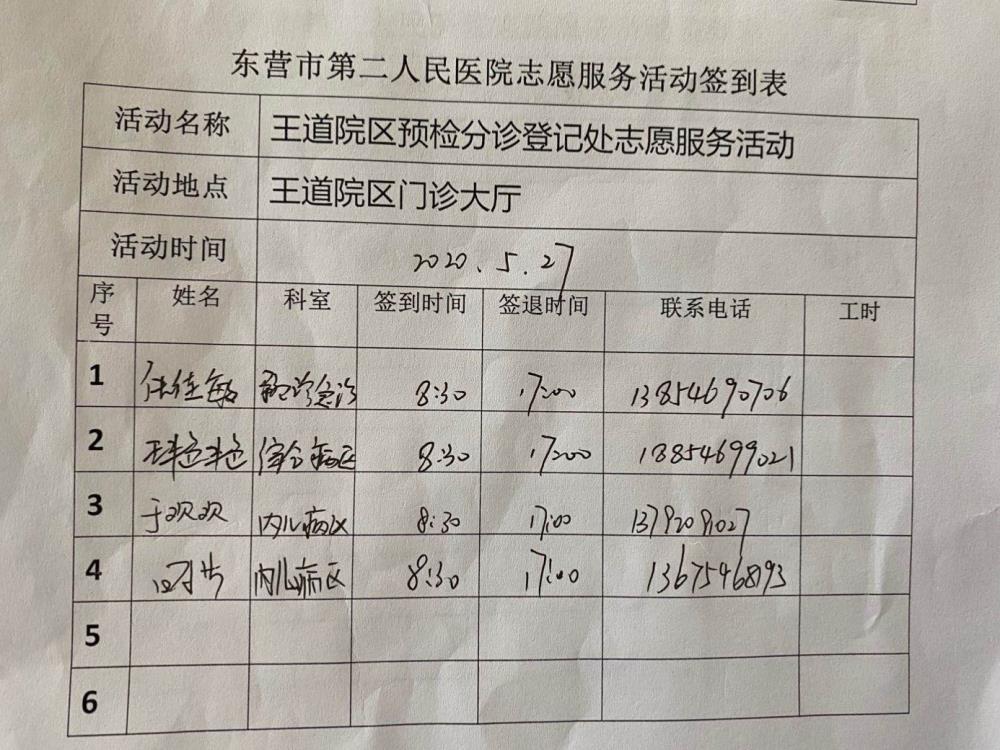 东营市第二人民医院志愿服务活动签到表
活动名称 王道院区预检分诊登记处志愿服务活动
活动地点 王道院区门诊大厅
活动时间 2020.5.27
序号 姓名 科室 签到时间 签退时间 联系电话 工时
1 佳敏 急诊 8:30 17:00 13854690706
2 综合病区 8:30 17:00 18854699021
3 于欢欢 内儿病区 8:30 17:00
4 内儿病区 8:30 17:00 13675468193
5
6